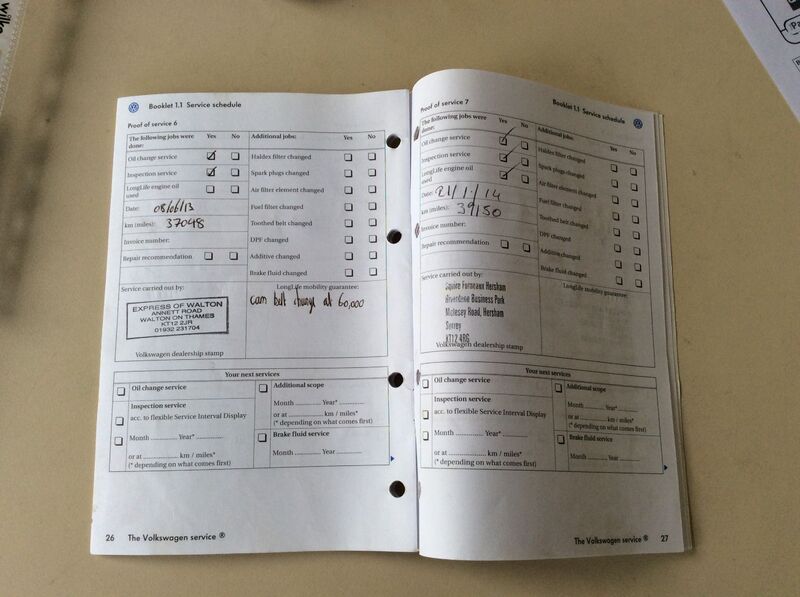 wilko
Pa
Booklet 1.1 Service schedule
Proof of service 6
The following jobs were done: Yes No Additional jobs: Yes No
Oil change service Haldex filter changed
Inspection service Spark plugs changed
LongLife engine oil used Air filter element changed
Date: 08/06/13 Fuel filter changed
km (miles): 37048 Toothed belt changed
Invoice number: DPF changed
Repair recommendation Additive changed
Brake fluid changed
Service carried out by: LongLife mobility guarantee:
cam belt change at 60,000
EXPRESS OF WALTON
ANNETT ROAD
WALTON ON THAMES
KT12 2JR
01932 231704
Volkswagen dealership stamp
Your next services
Oil change service
Inspection service
acc. to flexible Service Interval Display
Month ............ Year* ................
or at .................... km / miles*
(* depending on what comes first)
Additional scope
Month ............ Year* ............
or at .................... km / miles*
(* depending on what comes first)
Brake fluid service
Month ............ Year ............
26 The Volkswagen service ®
Booklet 1.1 Service schedule
Proof of service 7
The following jobs were done: Yes No Additional jobs: Yes No
Oil change service Haldex filter changed
Inspection service Spark plugs changed
LongLife engine oil used Air filter element changed
Date: 21/1/14 Fuel filter changed
km (miles): 39150 Toothed belt changed
Invoice number: DPF changed
Repair recommendation Additive changed
Brake fluid changed
Service carried out by: LongLife mobility guarantee:
Squire Furneaux Hersham
Riverdene Business Park
Molesey Road, Hersham
Surrey
KT12 4RG
Volkswagen dealership stamp
Your next services
Oil change service
Inspection service
acc. to flexible Service Interval Display
Month ............ Year* ................
or at .................... km / miles*
(* depending on what comes first)
Additional scope
Month ............ Year* ............
or at .................... km / miles*
(* depending on what comes first)
Brake fluid service
Month ............ Year ............
The Volkswagen service ® 27